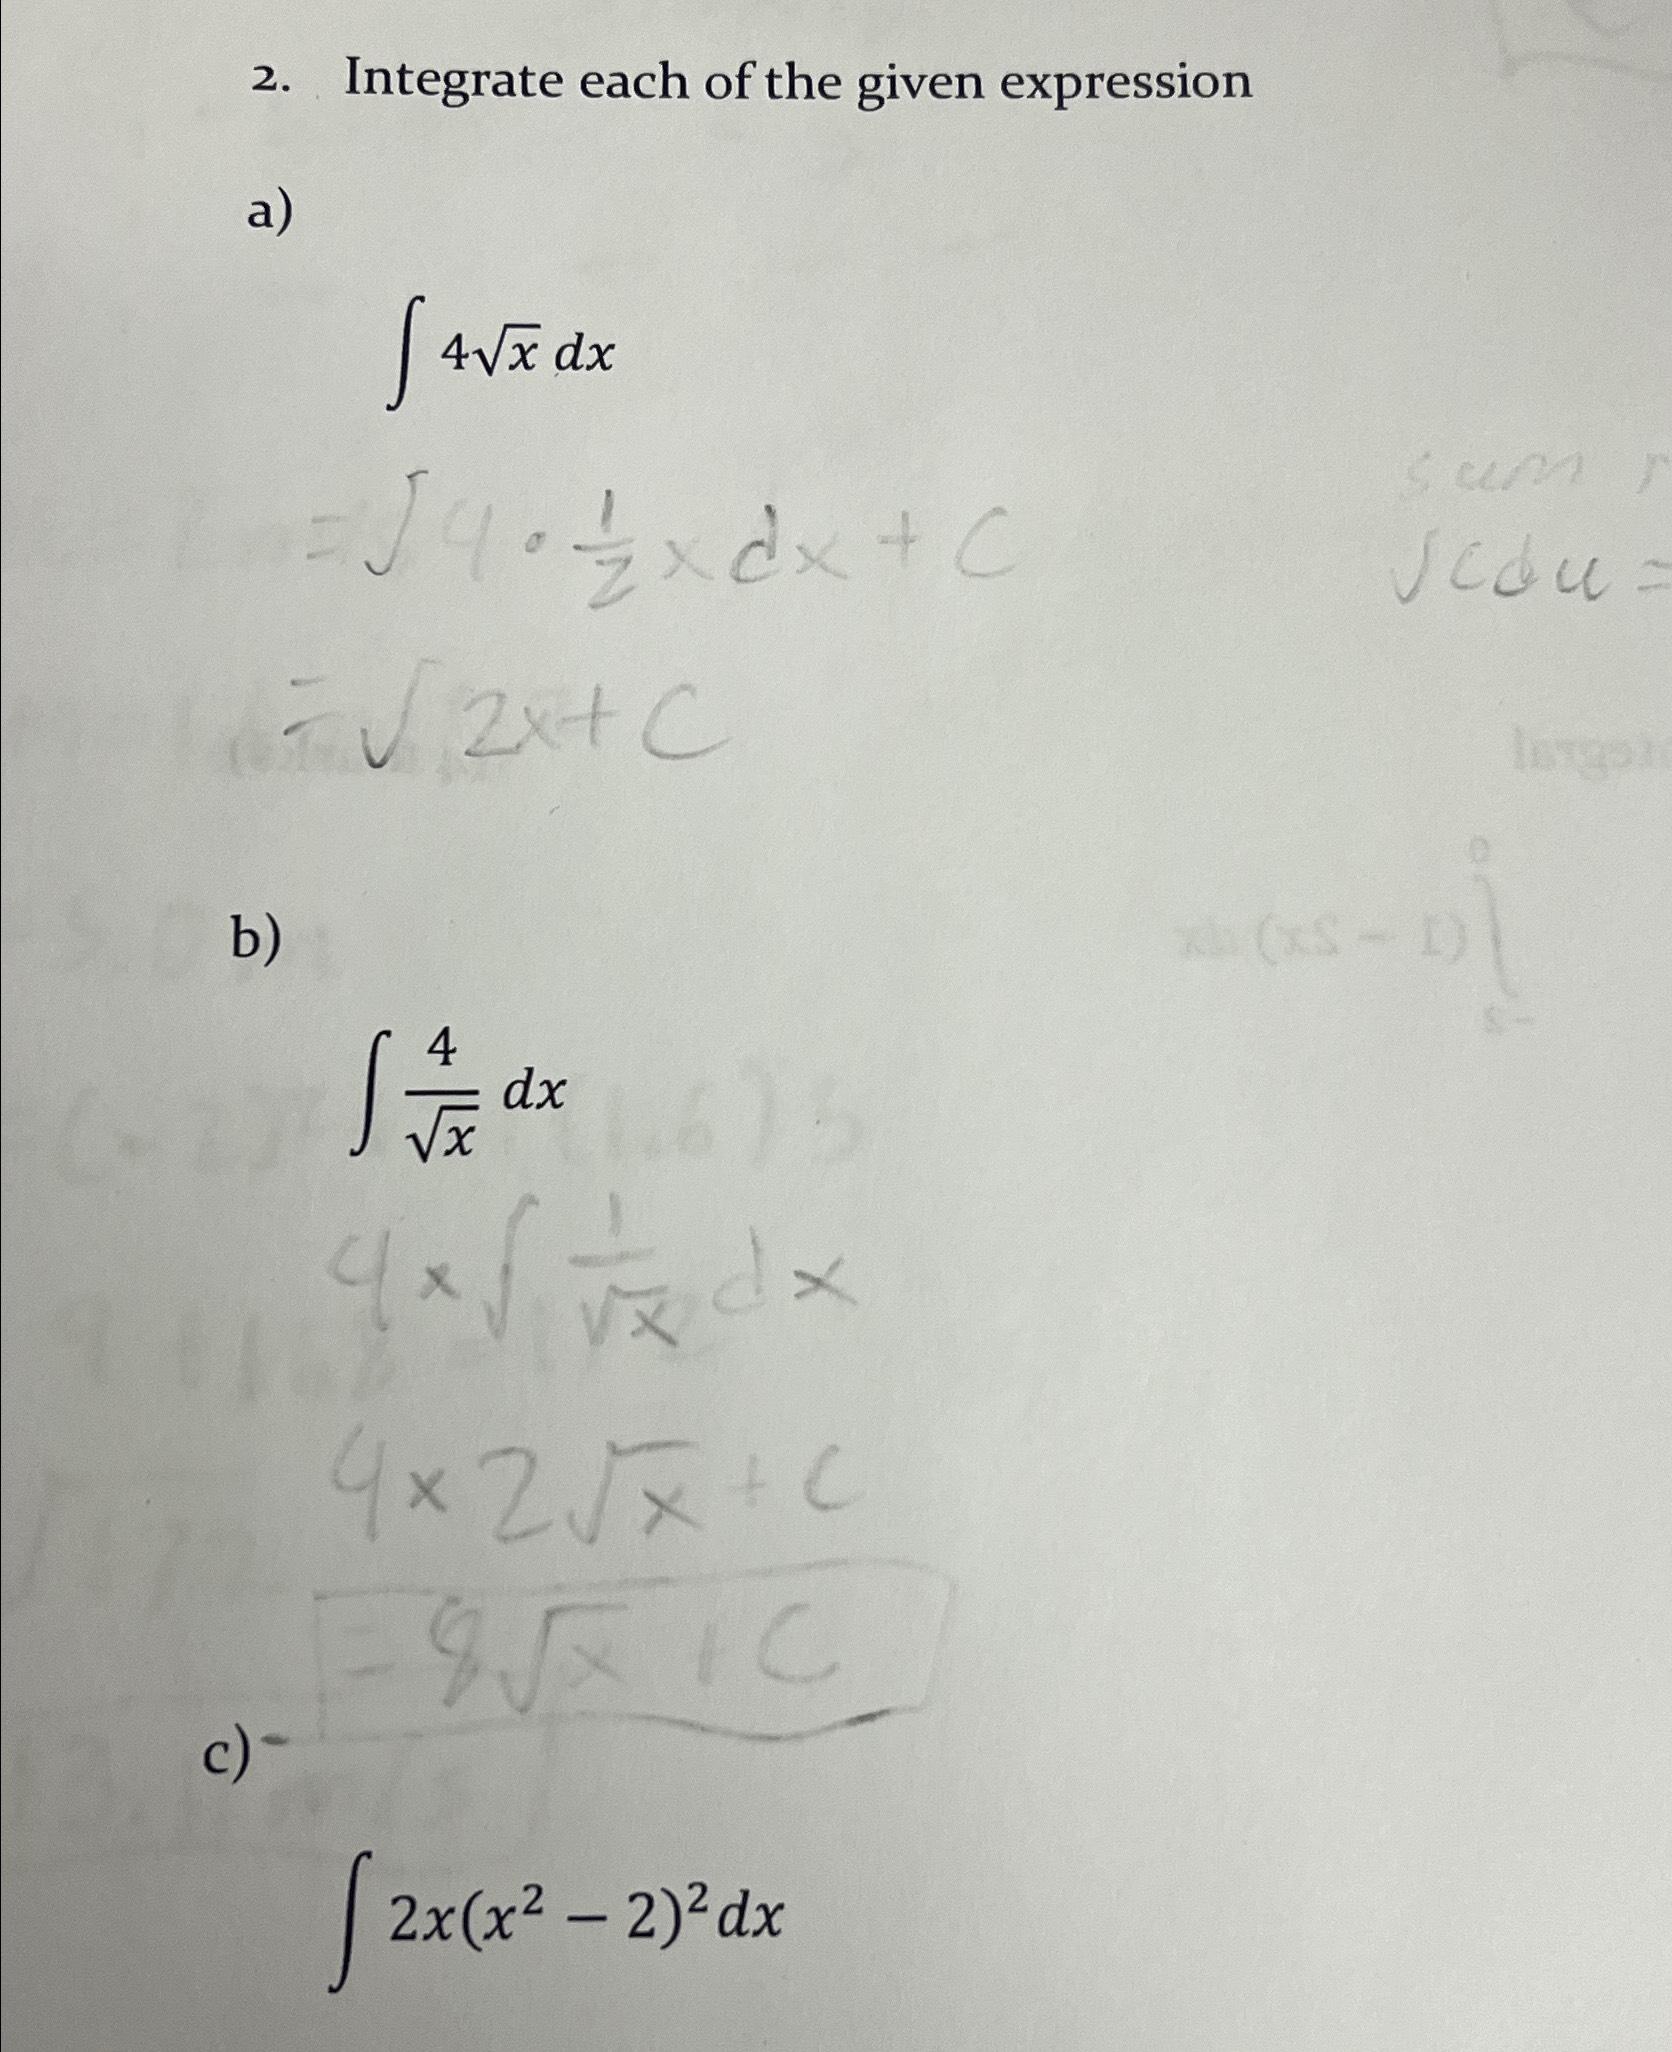 2. Integrate each of the given expression
a)
∫ 4√x dx
= ∫ 4 · 1/2 x dx + C
sum
∫cdu =
= ∫ 2x + C
b)
∫ 4/√x dx
4 × ∫ 1/√x dx
4 × 2√x + C
= 8√x + C
c)
∫ 2x(x² − 2)² dx